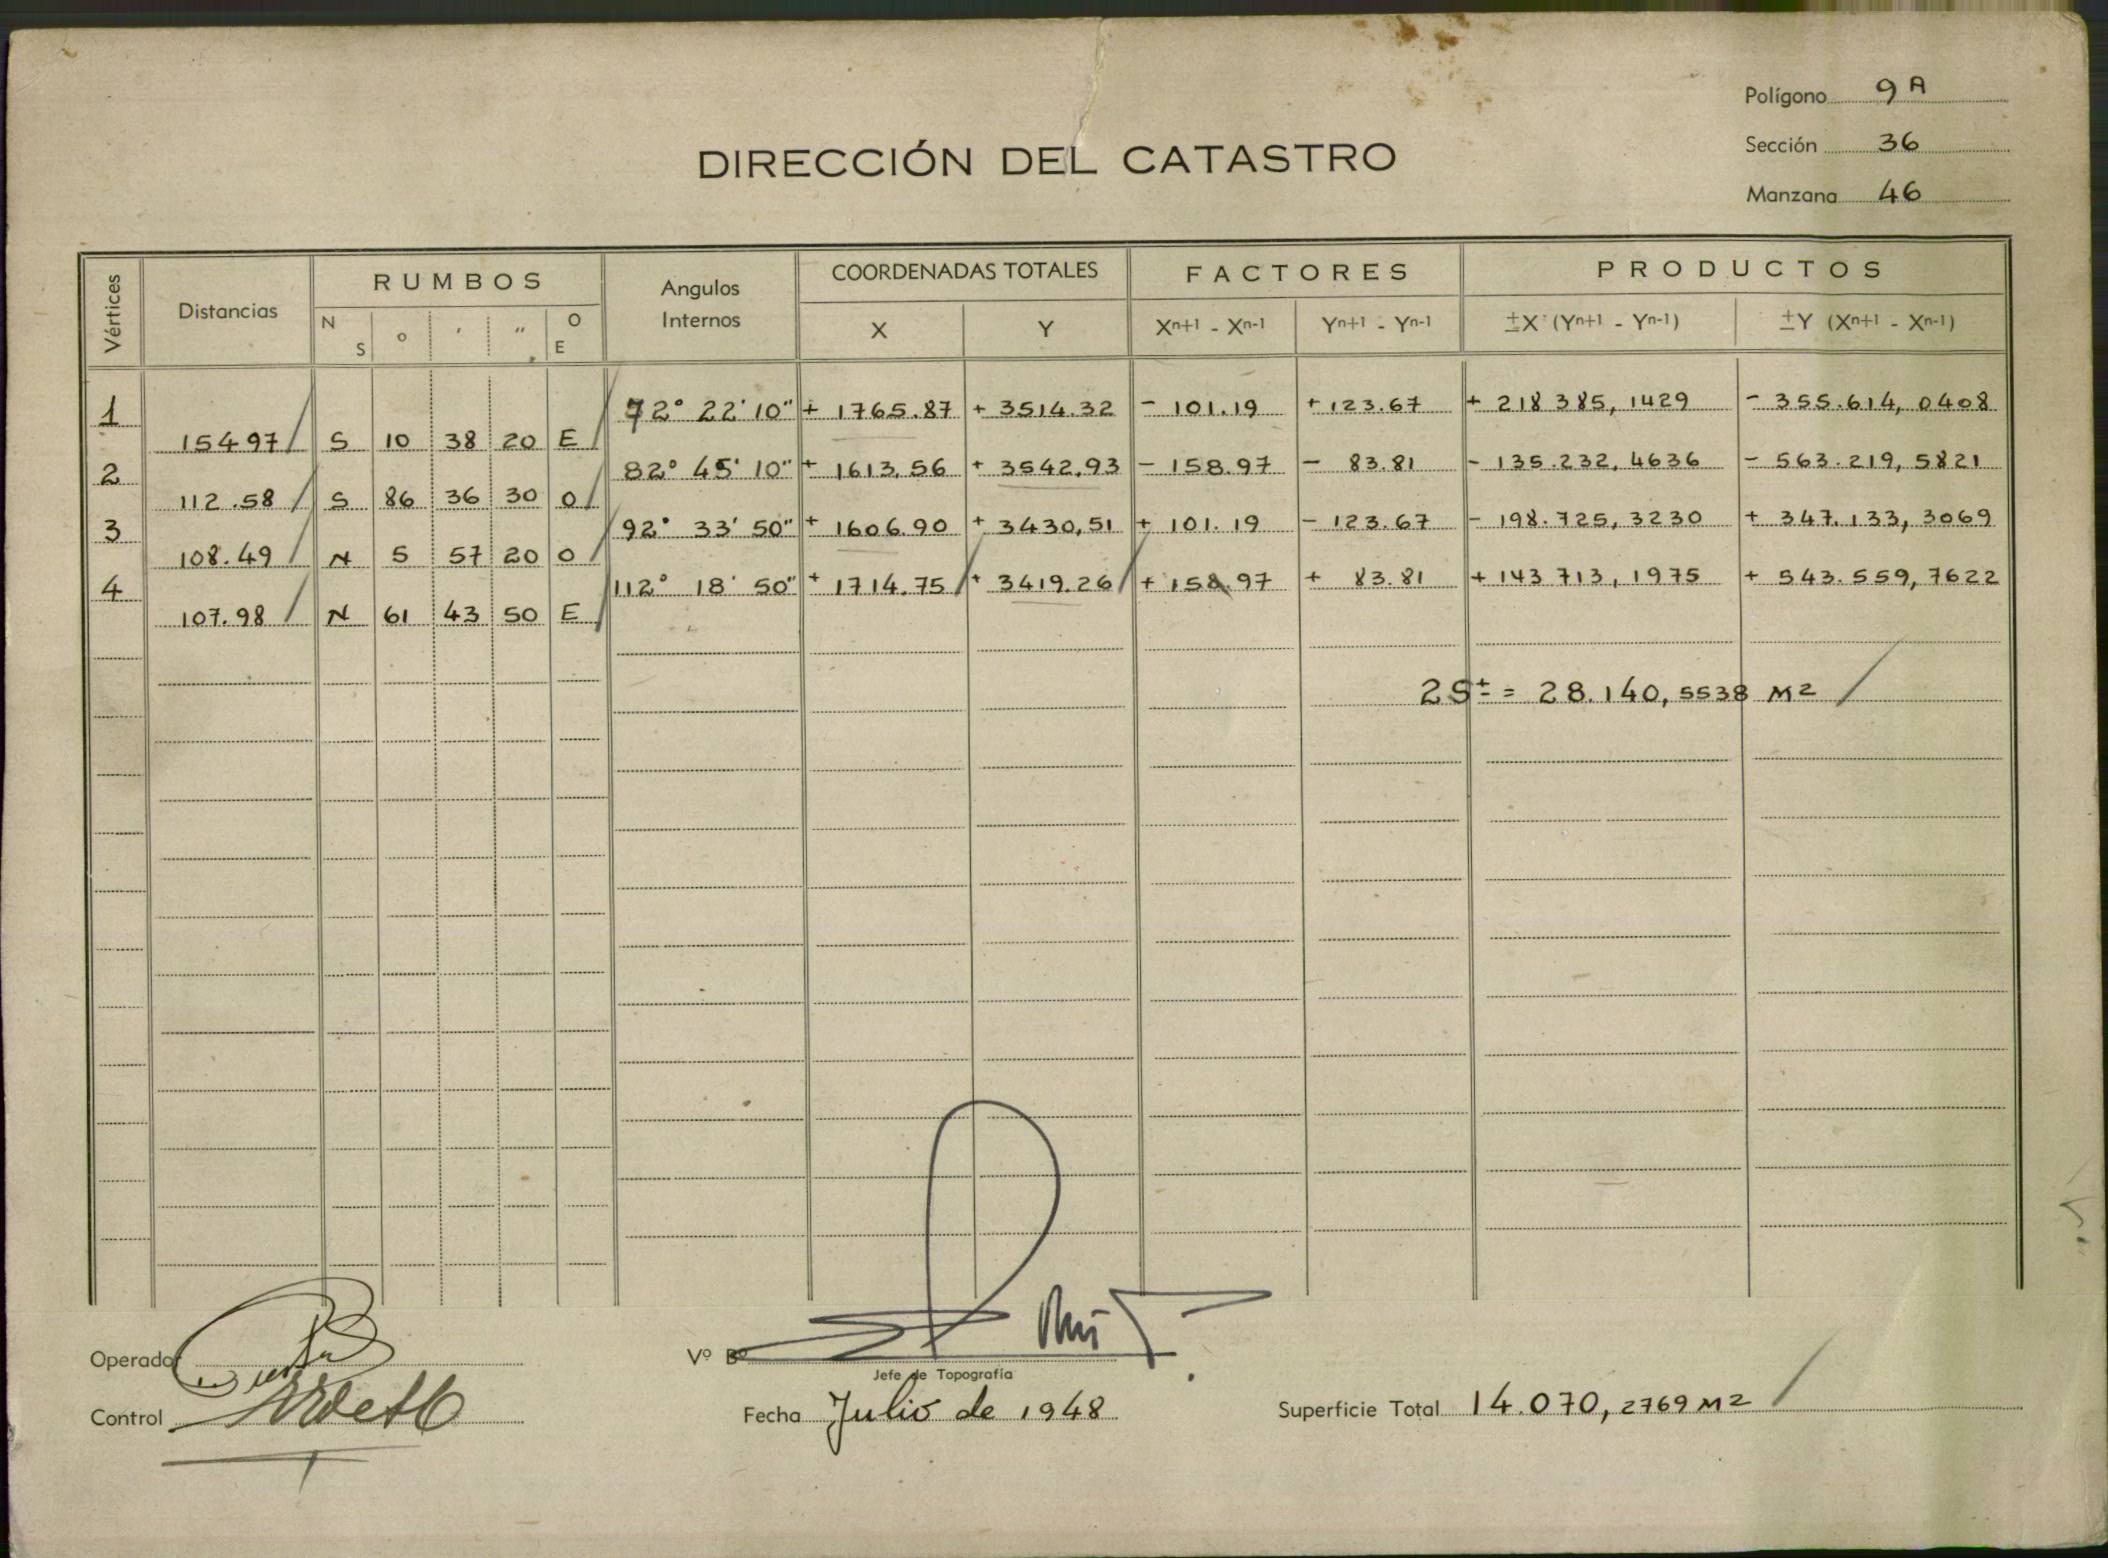 Polígono 9 A
Sección 36
Manzana 46
DIRECCIÓN DEL CATASTRO
Vértices Distancias RUMBOS Angulos Internos COORDENADAS TOTALES FACTORES PRODUCTOS
N S ° ' " O E X Y Xn+1 - Xn-1 Yn+1 - Yn-1 ±X (Yn+1 - Yn-1) ±Y (Xn+1 - Xn-1)
1 72° 22' 10" + 1765.87 + 3514.32 - 101.19 + 123.67 + 218 385, 1429 - 355.614, 0408
154 97 S 10 38 20 E
2 82° 45' 10" + 1613,56 + 3542,93 - 158.97 - 83.81 - 135.232, 4636 - 563.219, 5821
112.58 S 86 36 30 O
3 92° 33' 50" + 1606.90 + 3430,51 + 101.19 - 123.67 - 198.725, 3230 + 347.133, 3069
108.49 N 5 57 20 O
4 112° 18' 50" + 1714.75 + 3419.26 + 158.97 + 83.81 + 143 713, 1975 + 543.559, 7622
107.98 N 61 43 50 E
2S± = 28.140, 5538 M2
Operador
Vº Bº
Jefe de Topografía
Control
Fecha Julio de 1948
Superficie Total 14.070, 2769 M2